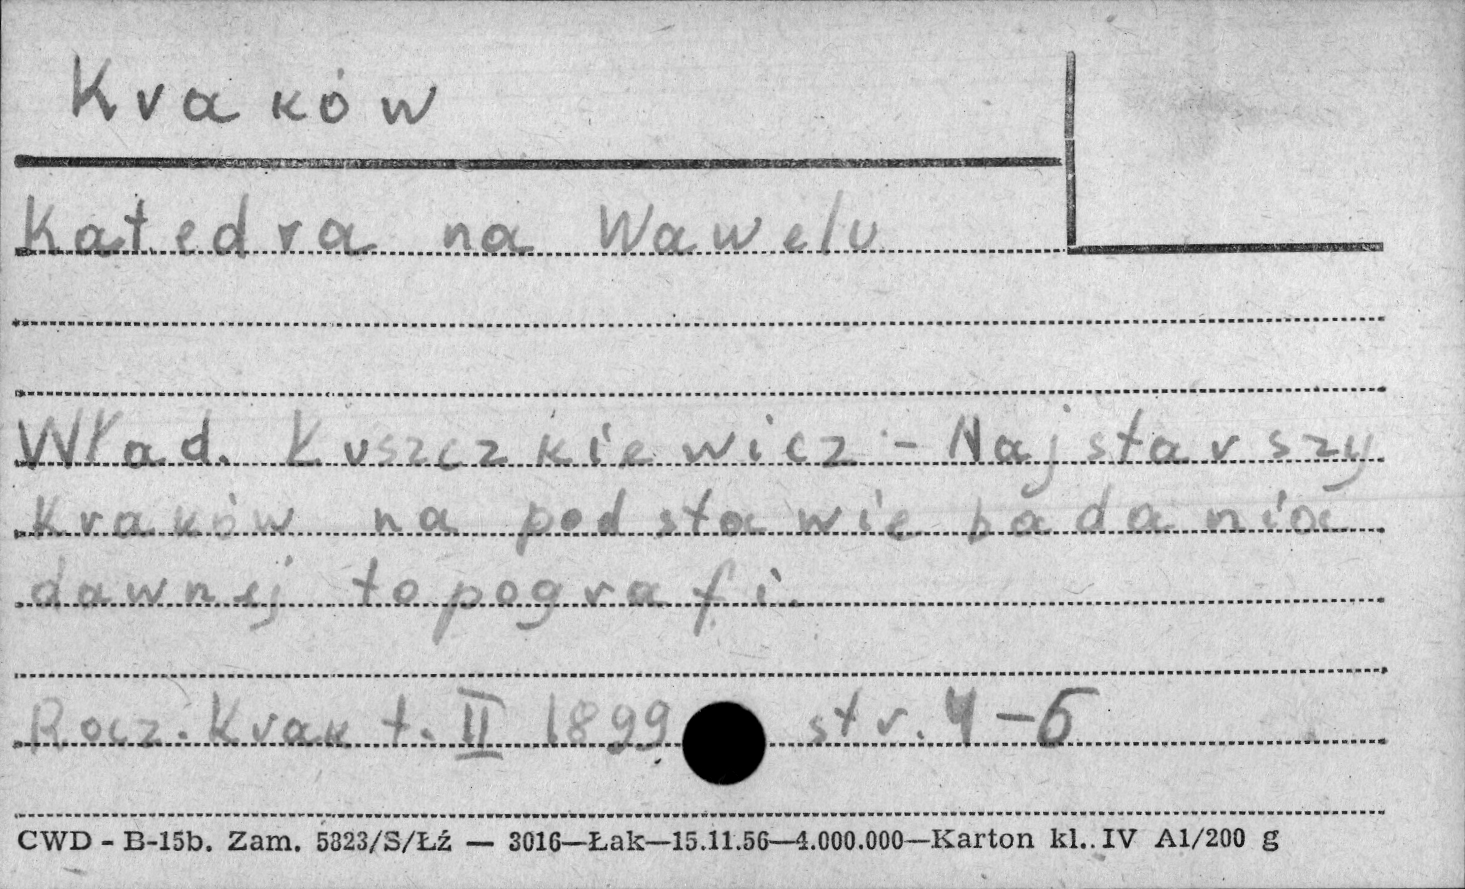 Kraków
Katedra na Wawelu
Wład. Łuszczkiewicz - Najstarszy
Kraków na podstawie badania
dawnej topografi.
Rocz. Krak t. II 1899 str. 4-5
CWD - B-15b. Zam. 5823/S/Łź — 3016—Łak—15.11.56—4.000.000—Karton kl.. IV A1/200 g